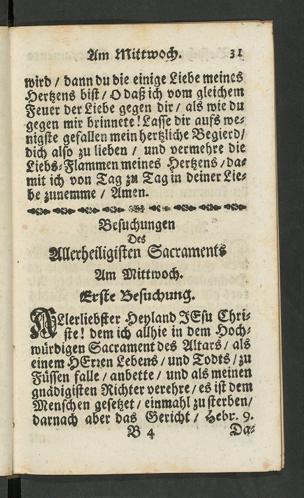 Am Mittwoch. 31
wird / dann du die einige Liebe meines
Hertzens bist / O daß ich vom gleichem
Feuer der Liebe gegen dir / als wie du
gegen mir brinnete! Lasse dir aufs we-
nigste gefallen mein hertzliche Begierd /
dich also zu lieben / und vermehre die
Liebs-Flammen meines Hertzens / da-
mit ich von Tag zu Tag in deiner Lie-
be zunemme / Amen.
Besuchungen
Des
Allerheiligisten Sacraments
Am Mittwoch.
Erste Besuchung.
ALlerliebster Heyland JEsu Chri-
ste! dem ich allhie in dem Hoch-
würdigen Sacrament des Altars / als
einem HErren Lebens / und Todts / zu
Füssen falle / anbette / und als meinen
gnädigisten Richter verehre / es ist dem
Menschen gesetzet / einmahl zu sterben /
darnach aber das Gericht / Hebr. 9.
B 4 Da-